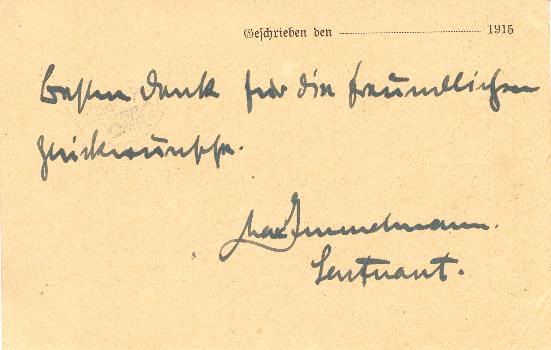 Geschrieben den 1915
Besten Dank für die freundlichen
Glückwünsche.
Max Immelmann.
Leutnant.